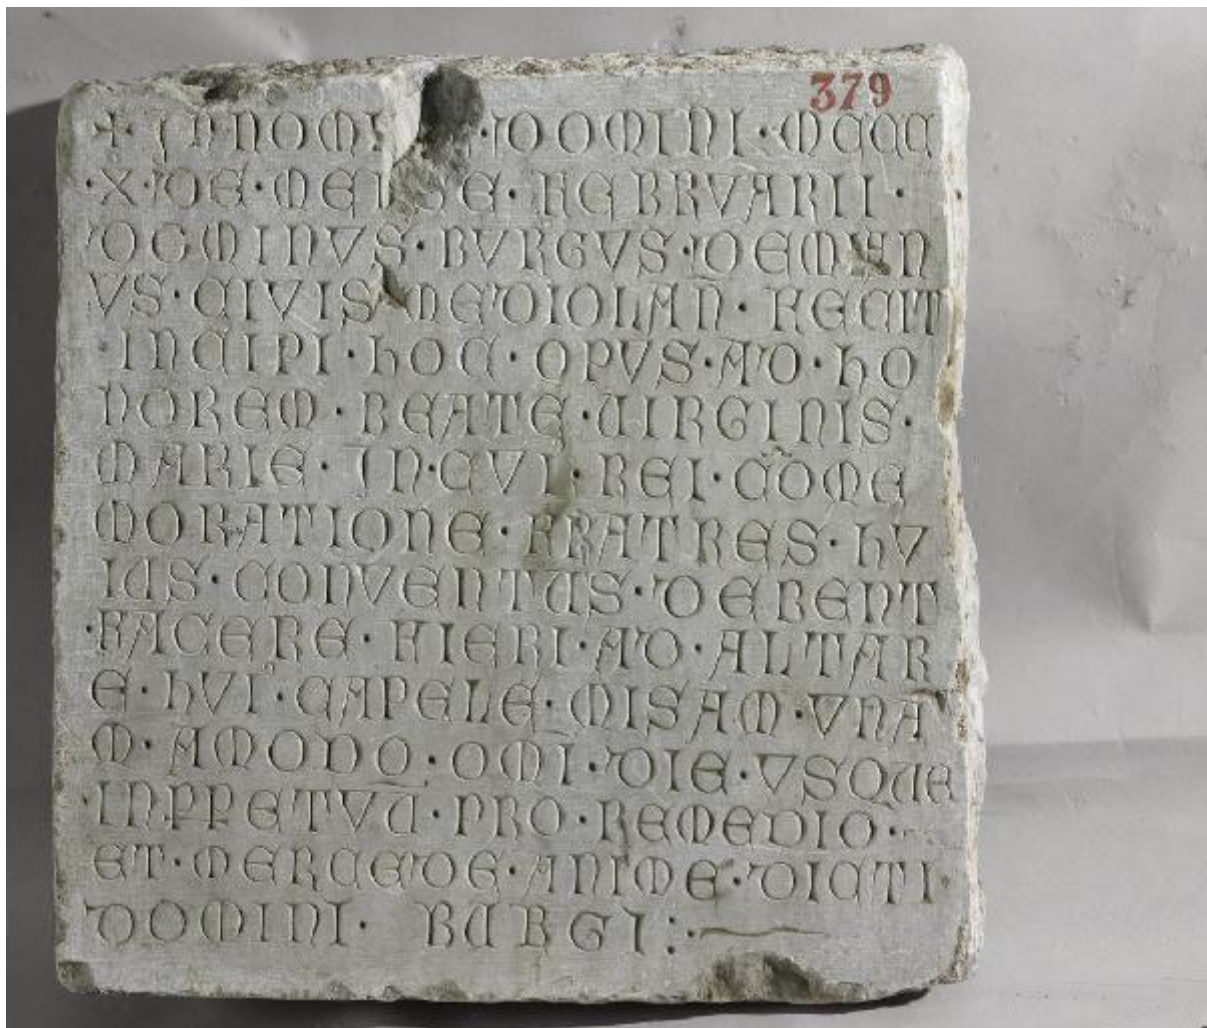 379
+ IN NOMI DOMINI · MCCC
· X · DE · MENSE · FEBRVARII ·
DOMINVS · BVRGVS · DEMEN
VS · CIVIS · MEDIOLAN̄ · FECIT
INCIPI · hOC · OPVS · AD · hO
NOREM · BEATE · UIRGINIS ·
MARIE · IN · CVI · REI · CŌME
MORATIONE · FRATRES · hV
IUS · CONVENTUS · DEBENT
· FACERE · FIERI · AD · ALTAR
E · hVI · CAPELE · MISAM · VNA
M · AMODO · OMI · DIE · VSQUE
IN · PPETVU · PRO · REMEDIO ·
ET · MERCEDE · ANIME · DICTI ·
DOMINI · BURGI :